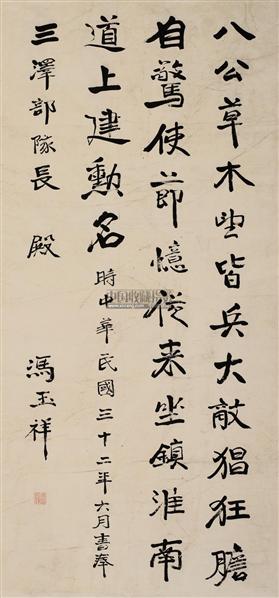 八公草木望皆兵大敵猖狂膽
自驚使節憶從来坐鎮淮南
道上建勳名時中華民國三十二年六月書奉
三澤部隊長 殿
馮玉祥